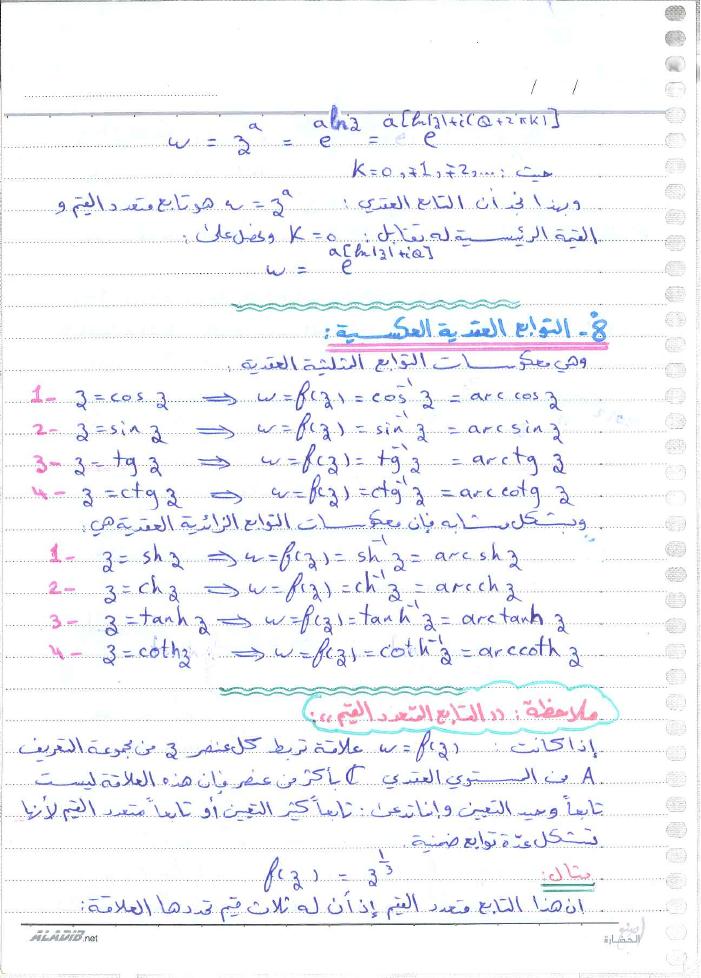 / /
w = z^a = e^{a ln z} = e^{a[ln|z|+i(Q+2πK)]}
حيث: K=0, ∓1, ∓2, ...
وبهذا نجد أن التابع العقدي: w = z^a هو تابع متعدد القيم و
القيمة الرئيسية له تقابل: K=0 ونحصل على:
w = e^{a[ln|z|+iQ]}
8- التوابع العقدية العكسية:
وهي معكوسات التوابع المثلثية العقدية:
1- z = cos z ⟹ w = f(z) = cos^{-1} z = arc cos z
2- z = sin z ⟹ w = f(z) = sin^{-1} z = arc sin z
3- z = tg z ⟹ w = f(z) = tg^{-1} z = arctg z
4- z = ctg z ⟹ w = f(z) = ctg^{-1} z = arccotg z
وبشكل مشابه فإن معكوسات التوابع الزائدية العقدية هي:
1- z = sh z ⟹ w = f(z) = sh^{-1} z = arcsh z
2- z = ch z ⟹ w = f(z) = ch^{-1} z = arcch z
3- z = tanh z ⟹ w = f(z) = tanh^{-1} z = arctanh z
4- z = coth z ⟹ w = f(z) = coth^{-1} z = arccoth z
ملاحظة: ((التابع المتعدد القيم)).
إذا كانت: w = f(z) علاقة تربط كل عنصر z من مجموعة التعريف
A من المستوي العقدي ℂ بأكثر من عنصر فإن هذه العلاقة ليست
تابعاً وحيد التعين وإنما تدعى: تابعاً كثير التعين أو تابعاً متعدد القيم لأنها
تشكل عدة توابع ضمنية.
مثال: f(z) = z^{1/3}
ان هذا التابع متعدد القيم إذ أن له ثلاث قيم تحددها العلاقة:
ALADIB.net
الحضارة